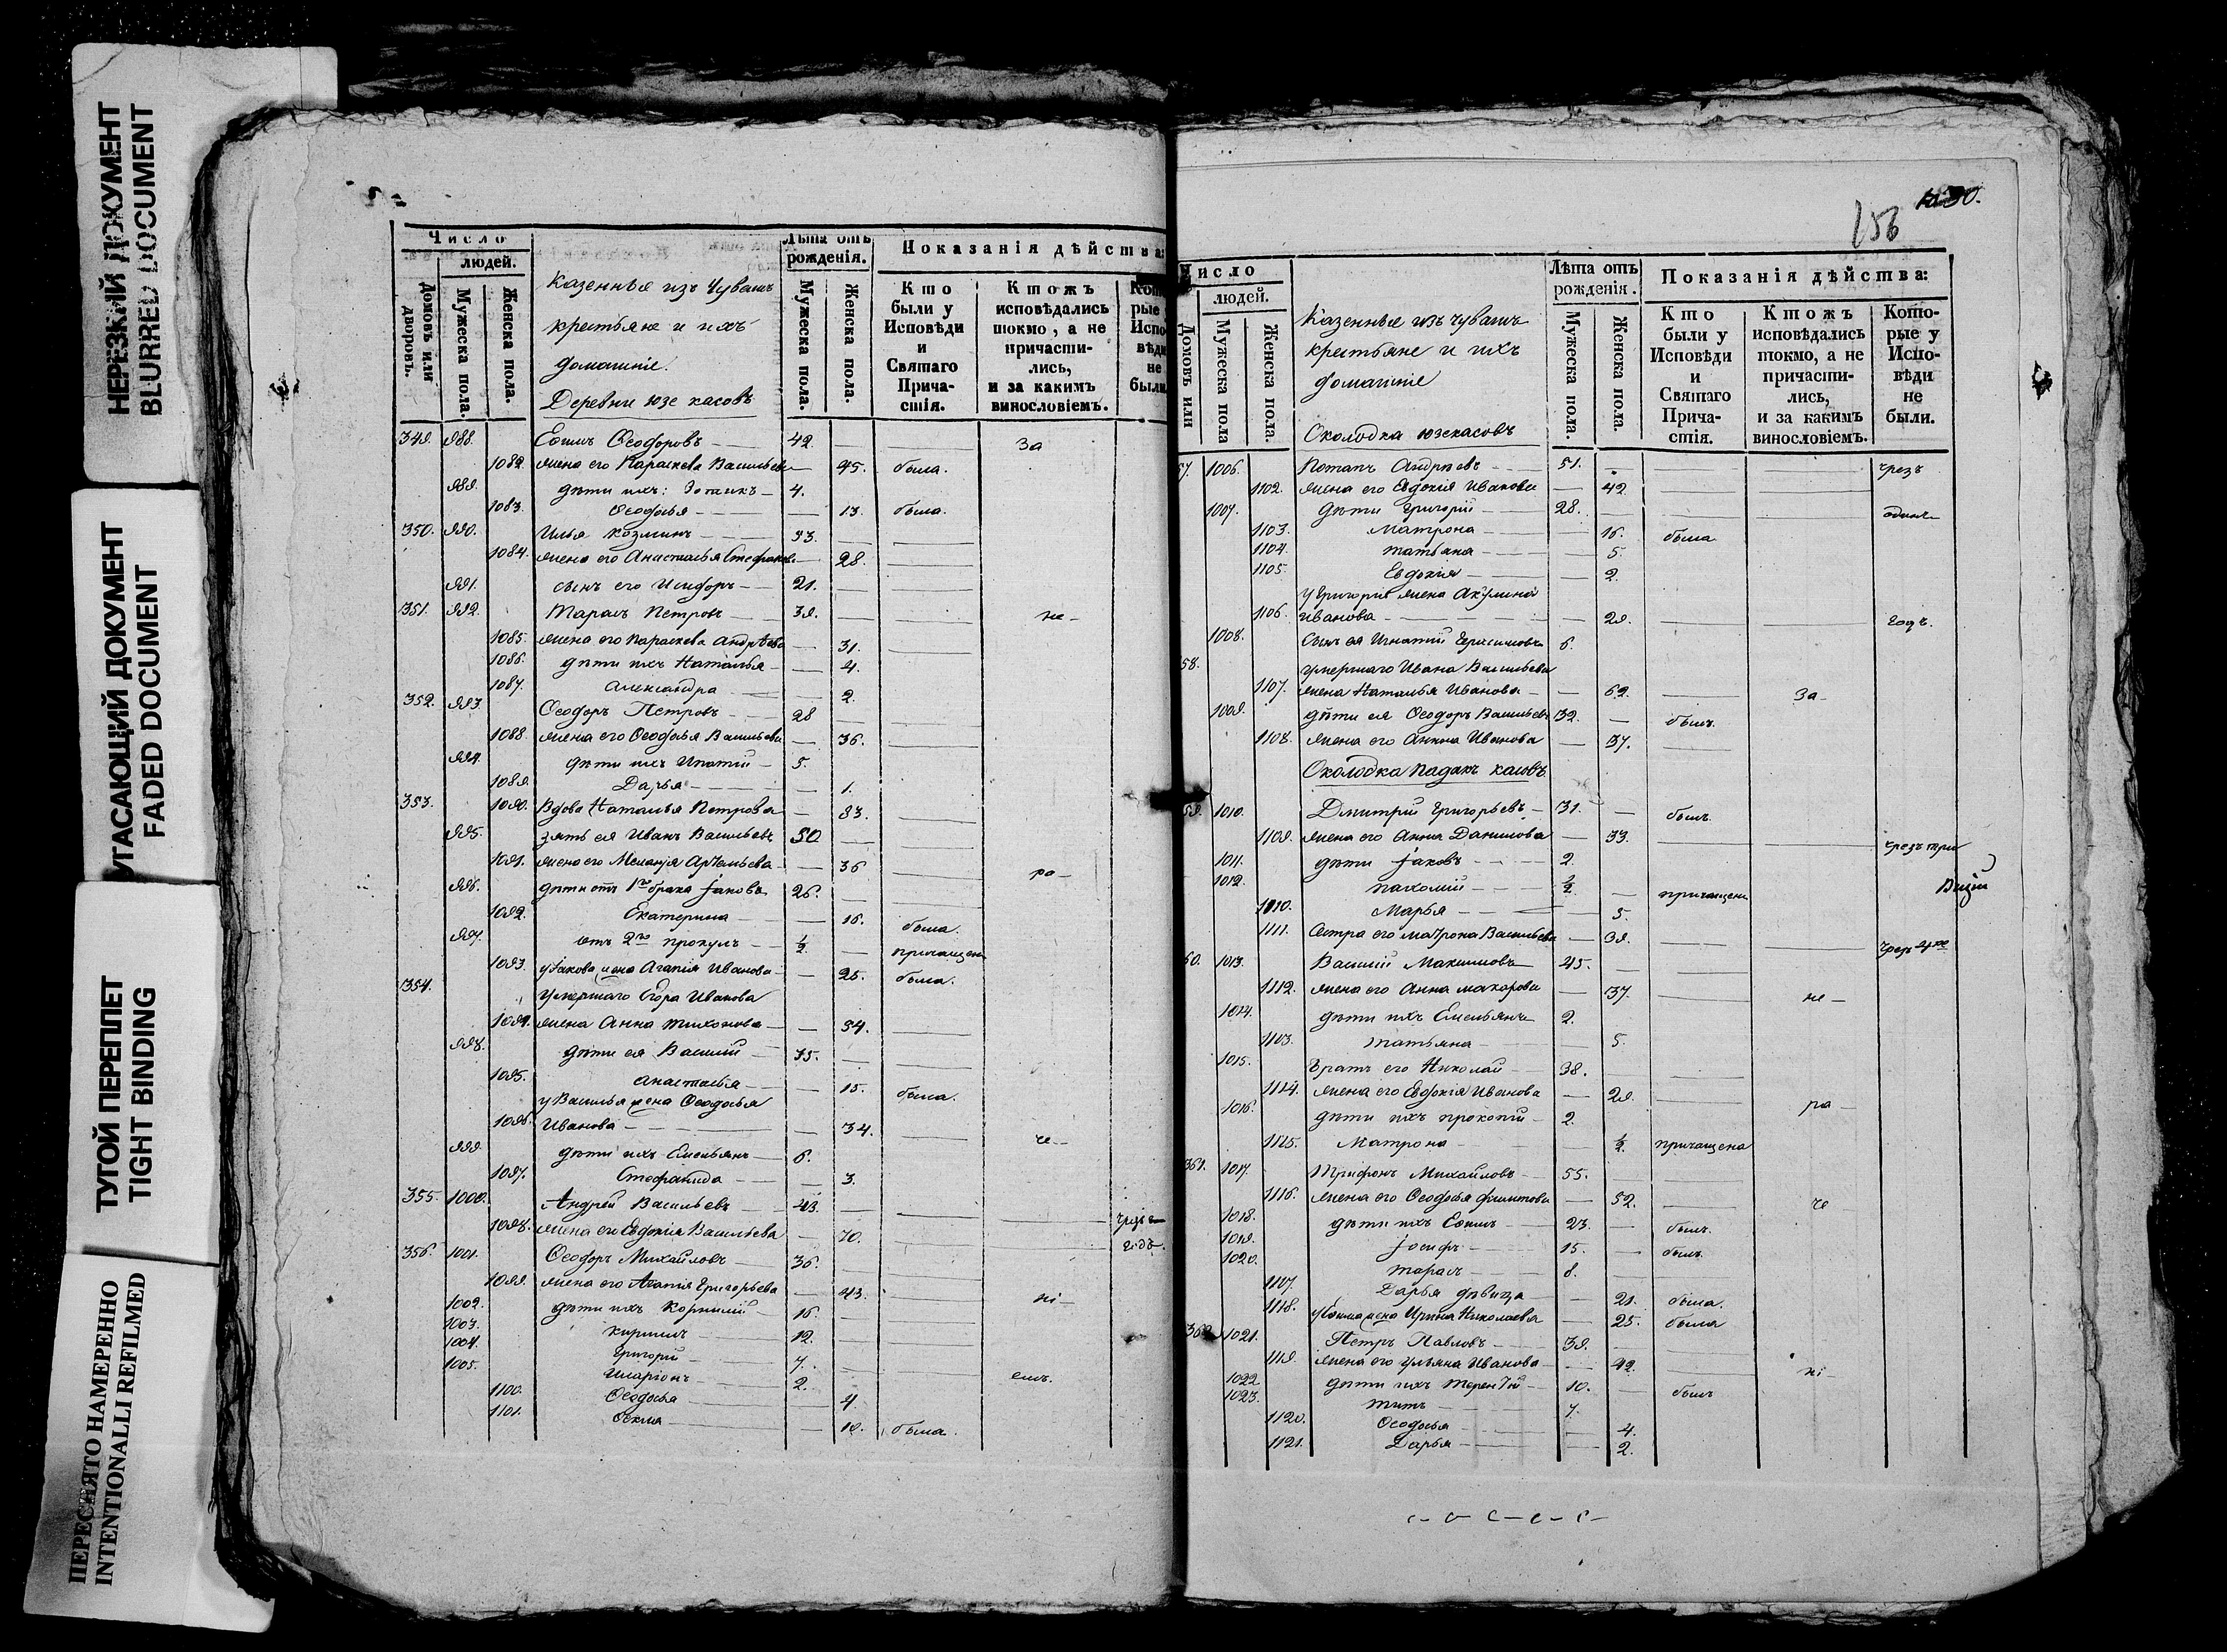 НЕРЕЗКИЙ ДОКУМЕНТ
BLURRED DOCUMENT
УГАСАЮЩИЙ ДОКУМЕНТ
FADED DOCUMENT
ТУГОЙ ПЕРЕПЛЕТ
TIGHT BINDING
ПЕРЕСНЯТО НАМЕРЕННО
INTENTIONALLI REFILMED
Число
людей.
Домовъ или дворовъ.
Мужеска пола.
Женска пола.
Казенныя изъ Чувашъ
крестьяне и ихъ
домашніе.
Деревни Юзе касовъ
Лѣта отъ рожденія.
Мужеска пола.
Женска пола.
Показанія дѣйства:
Кто были у Исповѣди и Святаго Причастія.
Ктожъ исповѣдались токмо, а не причастились, и за какимъ винословіемъ.
349. 988. Ефимъ Ѳеодоровъ 42. За
1082. жена его Параскева Васильева 45. была.
989. дѣти ихъ: Зотикъ 4.
1083. Ѳеодосья 13. была.
350. 990. Илья Козминъ 53.
1084. жена его Анастасья Стефанова 28.
991. сынъ его Исидоръ 21.
351. 992. Тарасъ Петровъ 39. не-
1085. жена его Параскева Андрѣева 31.
1086. дѣти ихъ Наталья 4.
1087. Александра 2.
352. 993. Ѳеодоръ Петровъ 28
1088. жена его Ѳеодосья Васильева 36.
994. дѣти ихъ Ипатій 5.
1089. Дарья 1.
353. 1090. Вдова Наталья Петрова 83.
995. зять ея Иванъ Васильевъ 50
1091. жена его Меланія Артемьева 36 ра-
996. дѣти отъ 1го брака Іаковъ 26.
1092. Екатерина 16. была.
997. отъ 2го Прокулъ ½. причащенъ
1093. у Іакова жена Агапія Иванова 25. была.
354. Умершаго Егора Иванова
1094. жена Анна Тихонова 54.
998. дѣти ея Василій 35.
1095. Анастасья 15. была.
у Василья жена Ѳеодосья
1096. Иванова 34. че-
999. дѣти ихъ Емельянъ 6.
1097. Стефанида 3.
355. 1000. Андрей Васильевъ 43.
1098. жена его Евдокія Васильева 70. годъ.
356. 1001. Ѳеодоръ Михайловъ 36.
1099. жена его Агапія Григорьева 43. ні-
1002. дѣти ихъ Корнилій 16.
1003. Кирилъ 12.
1004. Григорій 7.
1005. Иларіонъ 2. емъ.
1100. Ѳеодосья 4.
1101. Ѳекла 10. была.
156
Число
людей.
Домовъ или
Мужеска пола
Женска пола.
Казенные изъ чувашъ
крестьяне и ихъ
домашніе
Околодка Юзекасовъ
Лѣта отъ рожденія.
Мужеска пола.
Женска пола.
Показанія дѣйства:
Кто были у Исповѣди и Святаго Причастія.
Ктожъ исповѣдались токмо, а не причастились, и за какимъ винословіемъ.
Которые у Исповѣди не были.
57. 1006. Потапъ Андрѣевъ 51. чрезъ
1102. жена его Евдокія Иванова 42.
1007. дѣти Григорій 28. одинъ
1103. Матрона 16. была
1104. Татьяна 5.
1105. Евдокія 2.
у Григорія жена Акулина
1106. Иванова 29. годъ.
1008. Сынъ ея Игнатій Герасимовъ 6.
58. Умершаго Ивана Васильева
1107. жена Наталья Иванова 62. За-
1009. дѣти ея Ѳеодоръ Васильевъ 32. былъ.
1108. жена его Анна Иванова 37.
Околодка Падакъ касовъ
59. 1010. Дмитрій Григорьевъ 31. былъ.
1109. жена его Анна Данилова 33. чрезъ три
1011. дѣти Іаковъ 2.
1012. Пахомій ½. причащенъ
1110. Марья 5.
1111. Сестра его Матрона Васильева 39.
60. 1013. Василій Максимовъ 45.
1112. жена его Анна Макарова 37. не-
1014. дѣти ихъ Емельянъ 2.
1113. Татьяна 5.
1015. Братъ его Николай 38.
1114. жена его Евдокія Иванова 29. ра-
1016. дѣти ихъ Прокопій 2.
1115. Матрона ½. причащена
361. 1017. Трифонъ Михайловъ 55.
1116. жена его Ѳеодосья Филипова 52. че
1018. дѣти ихъ Ефимъ 23. былъ.
1019. Іосифъ 15. былъ.
1020. Тарасъ 8.
1117. Дарья дѣвица 21. была.
1118. у Ефима жена Ирина Николаева 25. была
362. 1021. Петръ Павловъ 39.
1119. жена его Ульяна Иванова 42. ні
1022 дѣти ихъ Терентій 10. былъ
1023. Титъ 7.
1120. Ѳеодосья 4.
1121. Дарья 2.